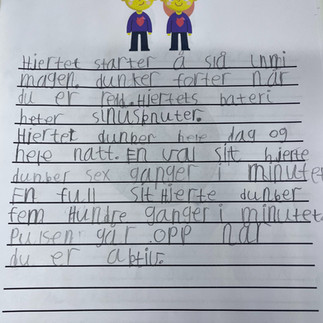 Hiertet starter å slå inni
magen. dunker forter når
du er redd. Hiertets bateri
heter sinusbnuter.
Hiertet dunber hele dag og
hele natt. En val sit hjerte
dunber sex ganger i minutet
En full sit Hierte dunber
fem Hundre ganger i minutet.
Pulsen går opp når
du er abtiv.